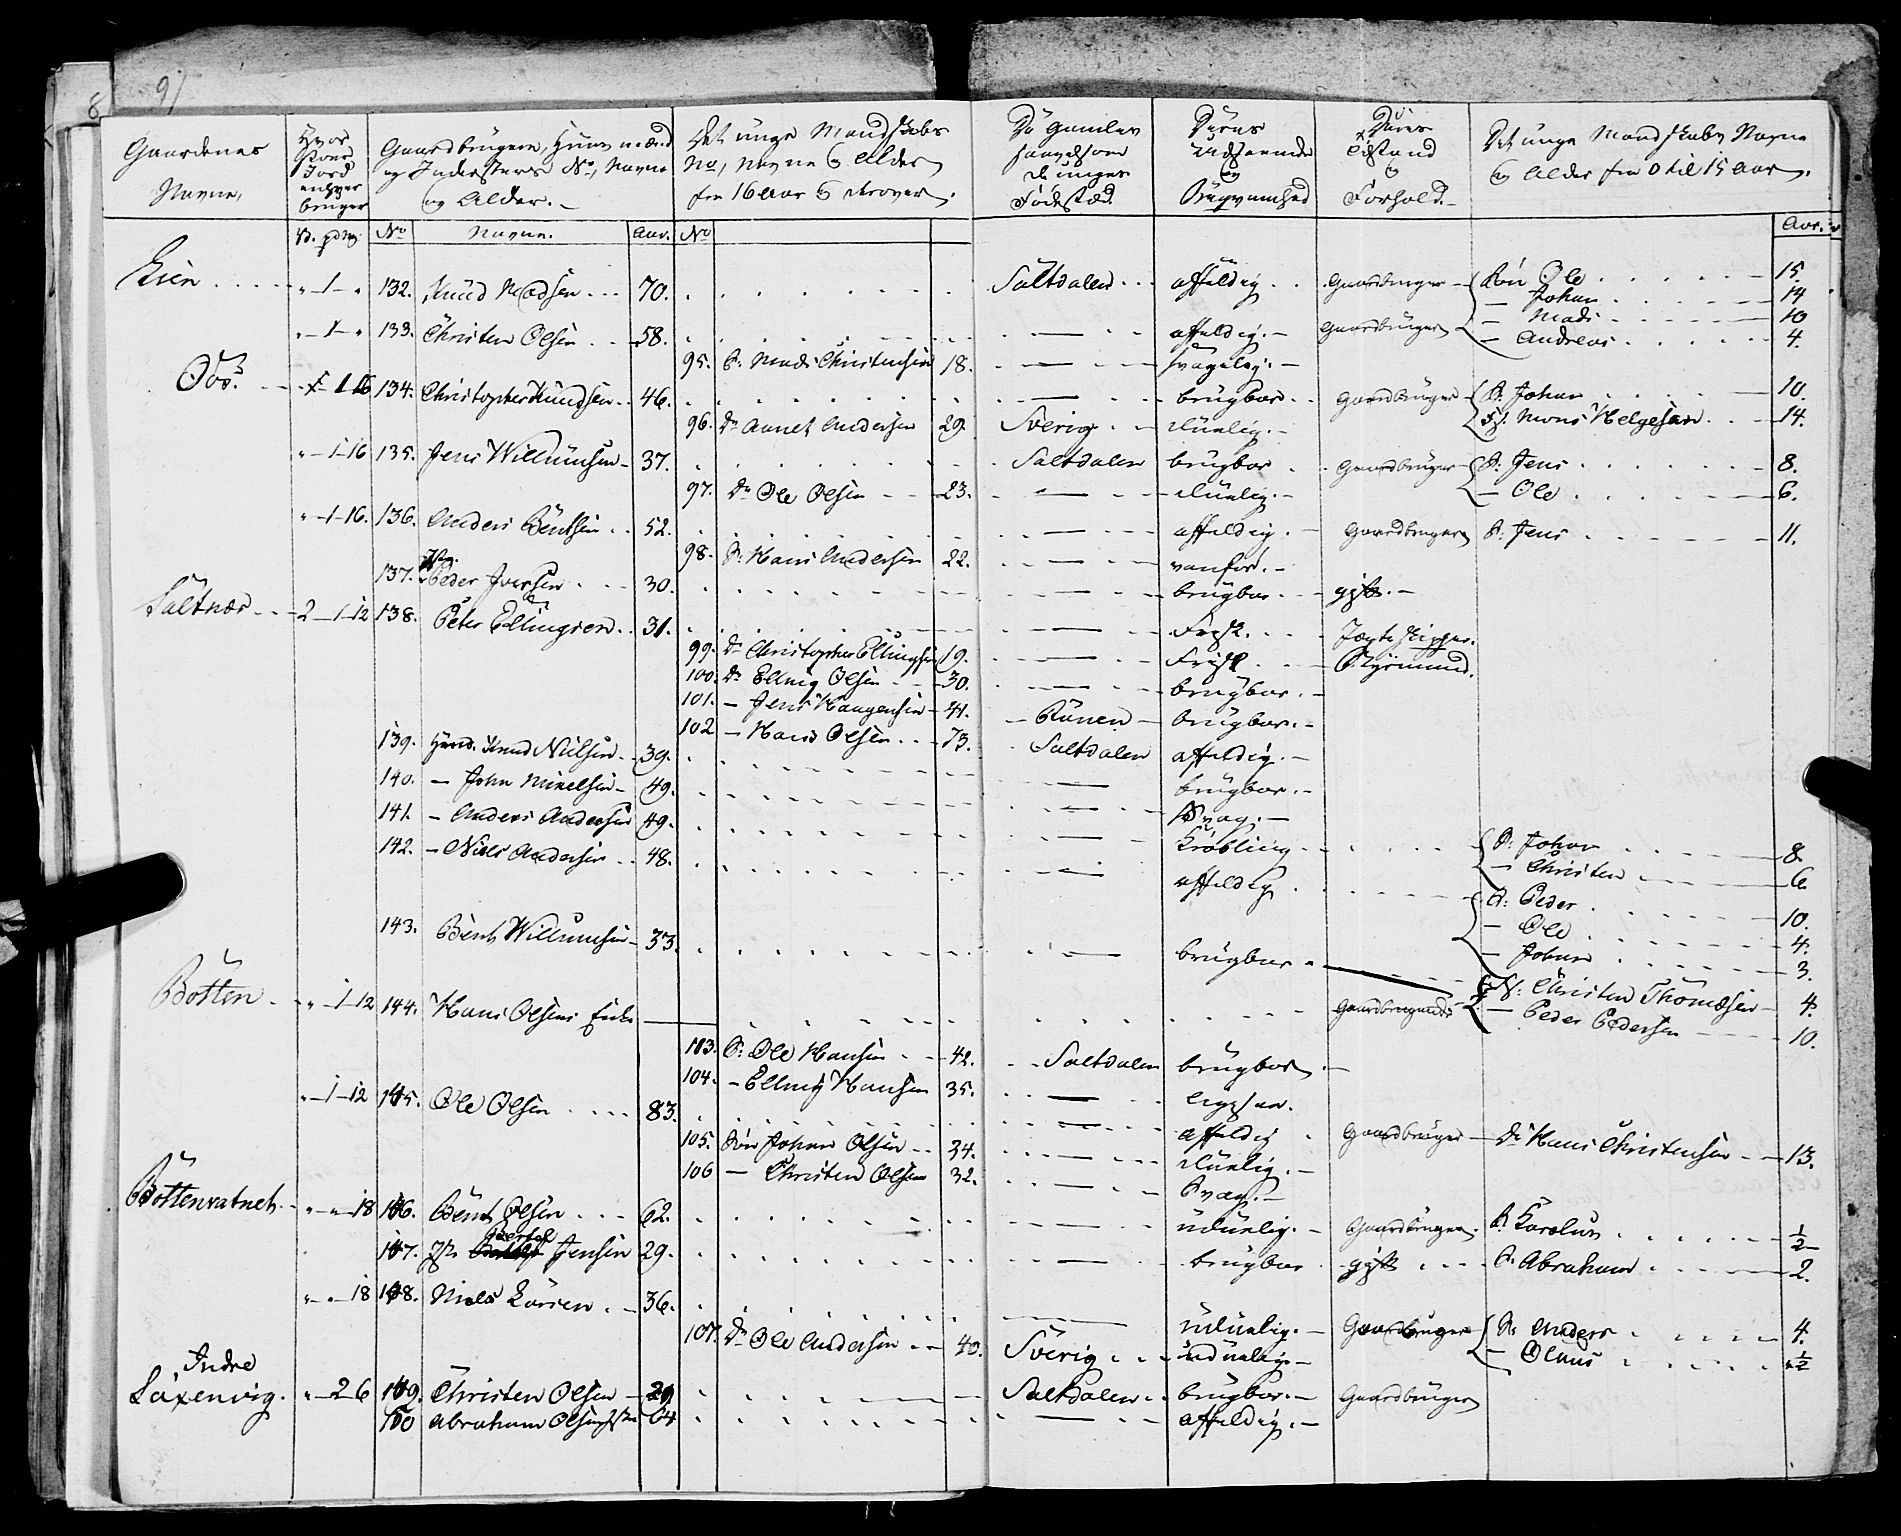 8 9)
Gaardenes Navne,
Hvor Stoer Jord enhver bruger
Gaardbrugere, Huusmænd og Indersters No, Navne og Alder.
Det unge Mandskabs No, Navne og Alder fra 16 Aar og derover.
De Gamles saavelsom de unges Fødested.
Deres Udseende og Brugvarnhed
Deres Tilstand og Forhold.
Det unge Mandskabs Navne og Alder fra 0 til 15 Aar.
V. pd. No Navne. Aar. No Aar.
" 1 " 132. Knud Madsen 70. Saltdalen affeldig Gaardbruger Søn Ole 15.
— Johan 14
— Mads 10
" 1 " 133. Christen Olsen 58. — affeldig. Gaardbruger — Andreas 4.
95. S. Mads Christensen 18. — svagelig.
1 16 134. Christopher Knudsen 46. — brugbar Gaardbruger S. Johan 10.
96. Dr Annet Andersen 29. Sverig duelig. Fs. Mons Helgesen 14.
" 1 16 135. Jens Willumsen 37. Saltdalen brugbar Gaardbruger S. Jens 8.
97. Dr Ole Olsen 23. — duelig. — Ole 6.
" 1 16. 136. Anders Bentsen 52. — affeldig. Gaardbruger S. Jens 11.
98. S. Hans Andersen 22. — vanfør.
137. Peder Iversen 30. — brugbar gift.
Saltnæs 2 1 12 138. Peter Ellingsen 31. — Frisk. Jægteskipper.
99. Dr Christopher Ellingsen 19. — Frisk
100. Dr Elling Olsen 30. — brugbar.
101. — Jens Haagensen 41. Ranen brugbar.
102 — Hans Olsen 73. Saltdalen affeldig.
139. Huusm. Knud Nielsen 39. — brugbar.
140. — John Mikelsen 49. — Svag.
141. — Anders Andersen 49. — Krøbling S. Johan 8.
— Christen 6
142. — Niels Andersen 48. — affeldig S. Peder 10.
— Ole 4.
— Johan 3.
143. Bent Willumsen 33. — brugbar N. Christen Thomæsen 4.
Botten " 1 12 144. Hans Olsens Enke Gaardbrugende — Peder Pedersen 10.
103. S. Ole Hansen 42. Saltdalen brugbar
104. — Elling Hansen 35. —
" 1 12 145. Ole Olsen 83. — affeldig Gaardbruger Dr Hans Christensen 13.
105. Søn Johan Olsen 34. — duelig.
106 — Christen Olsen 32. — Svag.
Bottenvatnet " " 18 146. Bent Olsen 62. — uduelig. Gaardbruger. S. Karolus ½
147. Jens Jensen 29. — brugbar gift S. Abraham 2.
" " 18 148. Niels Larsen 36. — uduelig. Gaardbruger S. Anders 4.
107. Dr Ole Andersen 40. Sverig uduelig — Olaus ½
Indre Saxenvig. " 2 6 149. Christen Olsen 29 Saltdalen brugbar. Gaardbruger
150 Abraham 64 — affeldig.